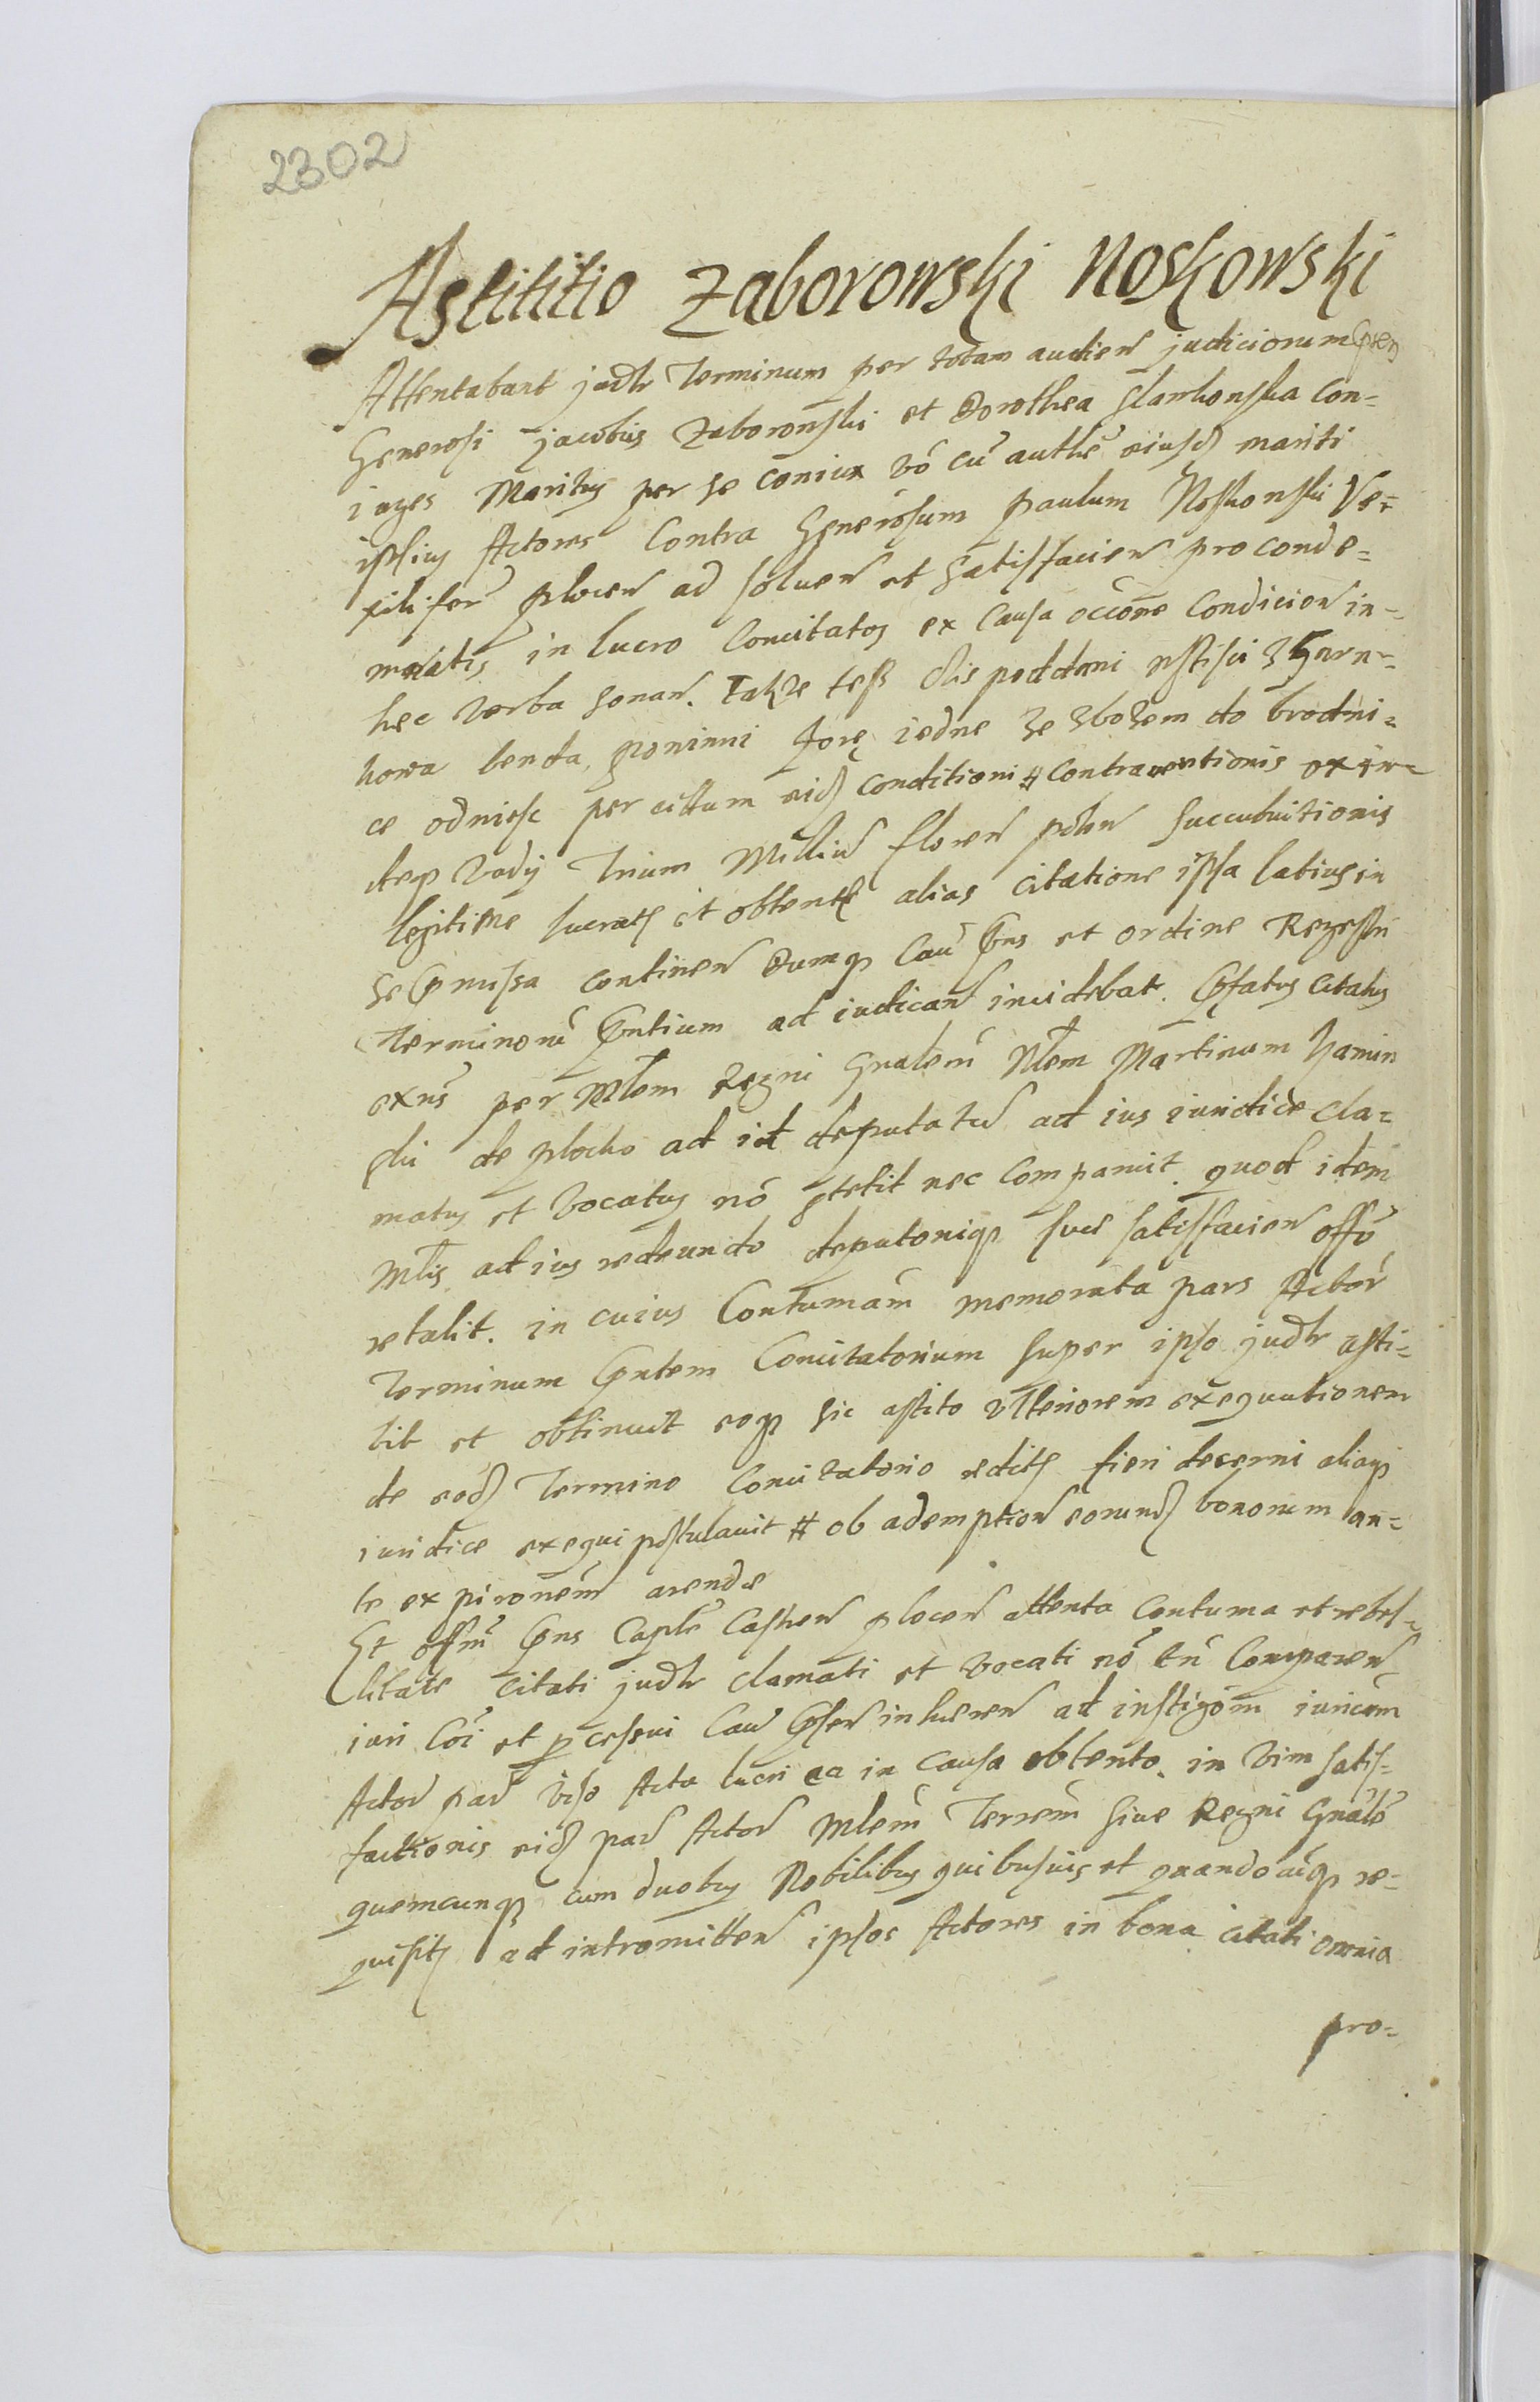 2302
Astititio Zaborowski Noskowski
Attentabant judtr Terminum per totam audien judiciorum pren
Generosi Jacobus Zaborowski et Dorothea Slarkowska Con-
iuges Maritus per se coniux vo cu authe eiusd mariti
ipsius Actores Contra Generosum Paulum Noskowski Ve-
xilifer plocen ad soluen et satisfacien pro conde-
mnatis in lucro Concitatos ex Causa occone Condicion in
hec verba sonan. Takze tesz Clis poddani
kowa benda, powinni forę iedne ze zbozem do brodni-
ce odniesc per citatum eid conditioni # Contrauentionis
deq vadij Trium Milliu floren polon Succubuitionis
legitime lucrate et obtente alias Citatione ipsa latius in
se pmissa continen Dumq Cau pns et ordine Regestri
Terminoru pntium ad iudican incidebat. Pfatus Citatus
exns per Mlem Regni Gnalem Nlem Martinum Kamin
ski de plocko ad id deputatu ad ius iuridice cla-
matus et vocatus no stetit nec Comparuit. quod idem
Mlis ad ius redeundo deputoniq sue satisfacien offo
retulit. in cuius Contumam memorata pars Actor
Terminum pntem Concitatorium super ipso judtr asti-
tit et obtinuit eoq sic astito ulteriorem exequutionem
de eod Termino Concitatorio redite fieri decerni aliasq
iuridice exequi postulauit # ob ademption eorund bonorum an-
te expironem arende
Et offm pns Caple Castren plocen attenta Contuma et rebel-
litate Citati judtr clamati et vocati no tn Comparen
iuri Coi et pcessui Cau pnsen inheren ad instigom iuricam
Actor par viso Acto lucri ea in Causa obtento. in vim satis-
factionis eid par Actor Mlem Terrem siue Regni Gnale
quemcunq cum duobus Nobilibus quibusuis et quandocuq re-
quisit ad intromitten ipsos Actores in bona Citati omnia
pro-